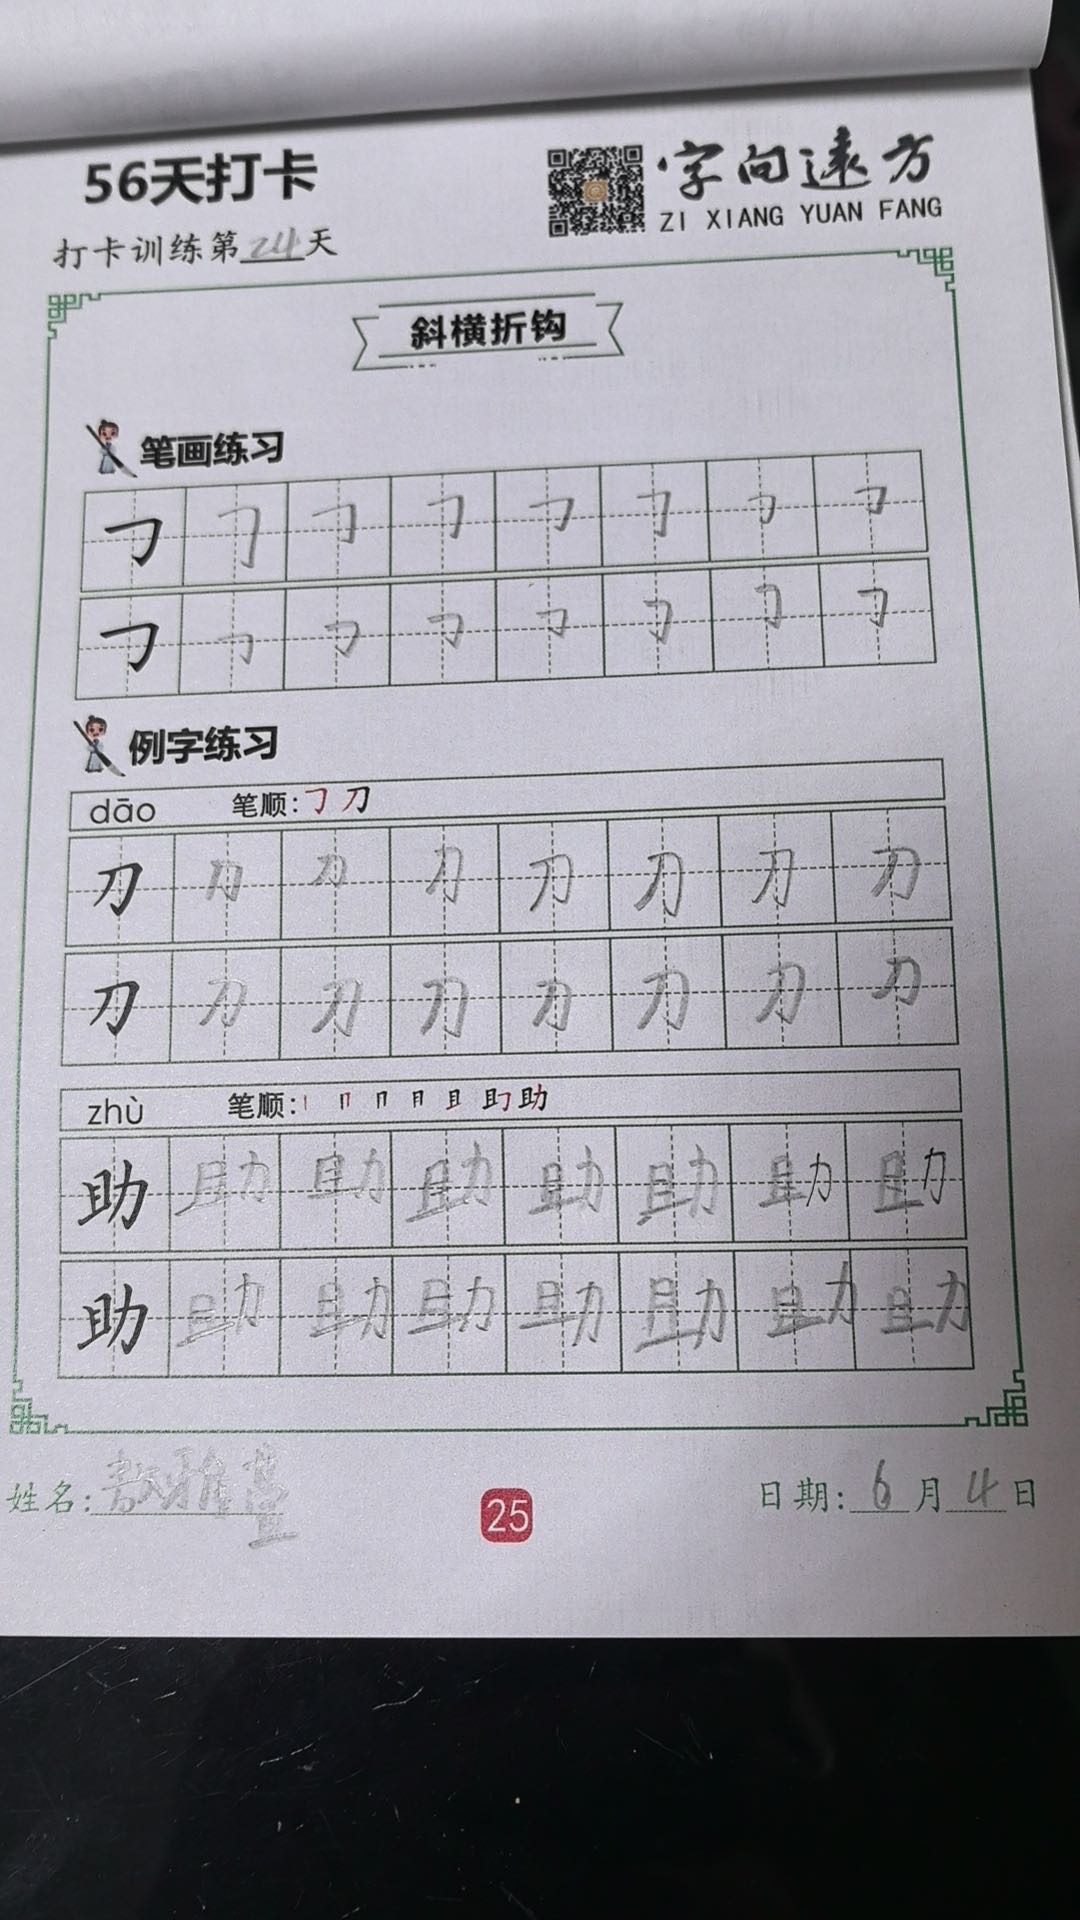 56天打卡
字向远方
ZI XIANG YUAN FANG
打卡训练第24天
斜横折钩
笔画练习
㇆ ㇆ ㇆ ㇆ ㇆ ㇆ ㇆ ㇆
㇆ ㇆ ㇆ ㇆ ㇆ ㇆ ㇆ ㇆
例字练习
dāo 笔顺: ㇆ 刀
刀 刀 刀 刀 刀 刀 刀 刀
刀 刀 刀 刀 刀 刀 刀 刀
zhù 笔顺: 丨 冂 ⺆ 月 且 助
助 助 助 助 助 助 助 助
助 助 助 助 助 助 助 助
姓名: 敖雅
25
日期: 6月4日